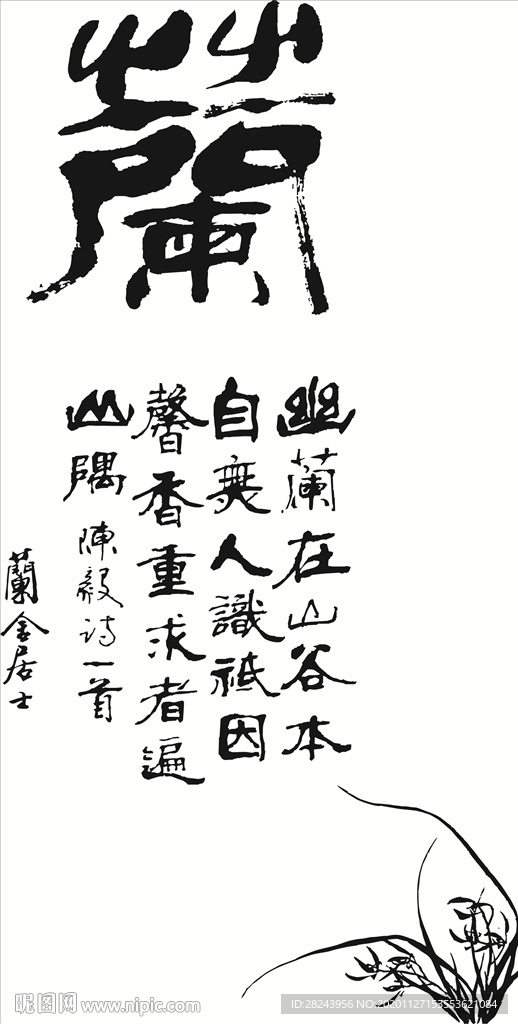 蘭
幽蘭在山谷本
自無人識祗因
馨香重求者遍
山隅 陳毅诗一首
蘭舍居士
昵图网 www.nipic.com
ID:28243956 NO:20201127153553621084